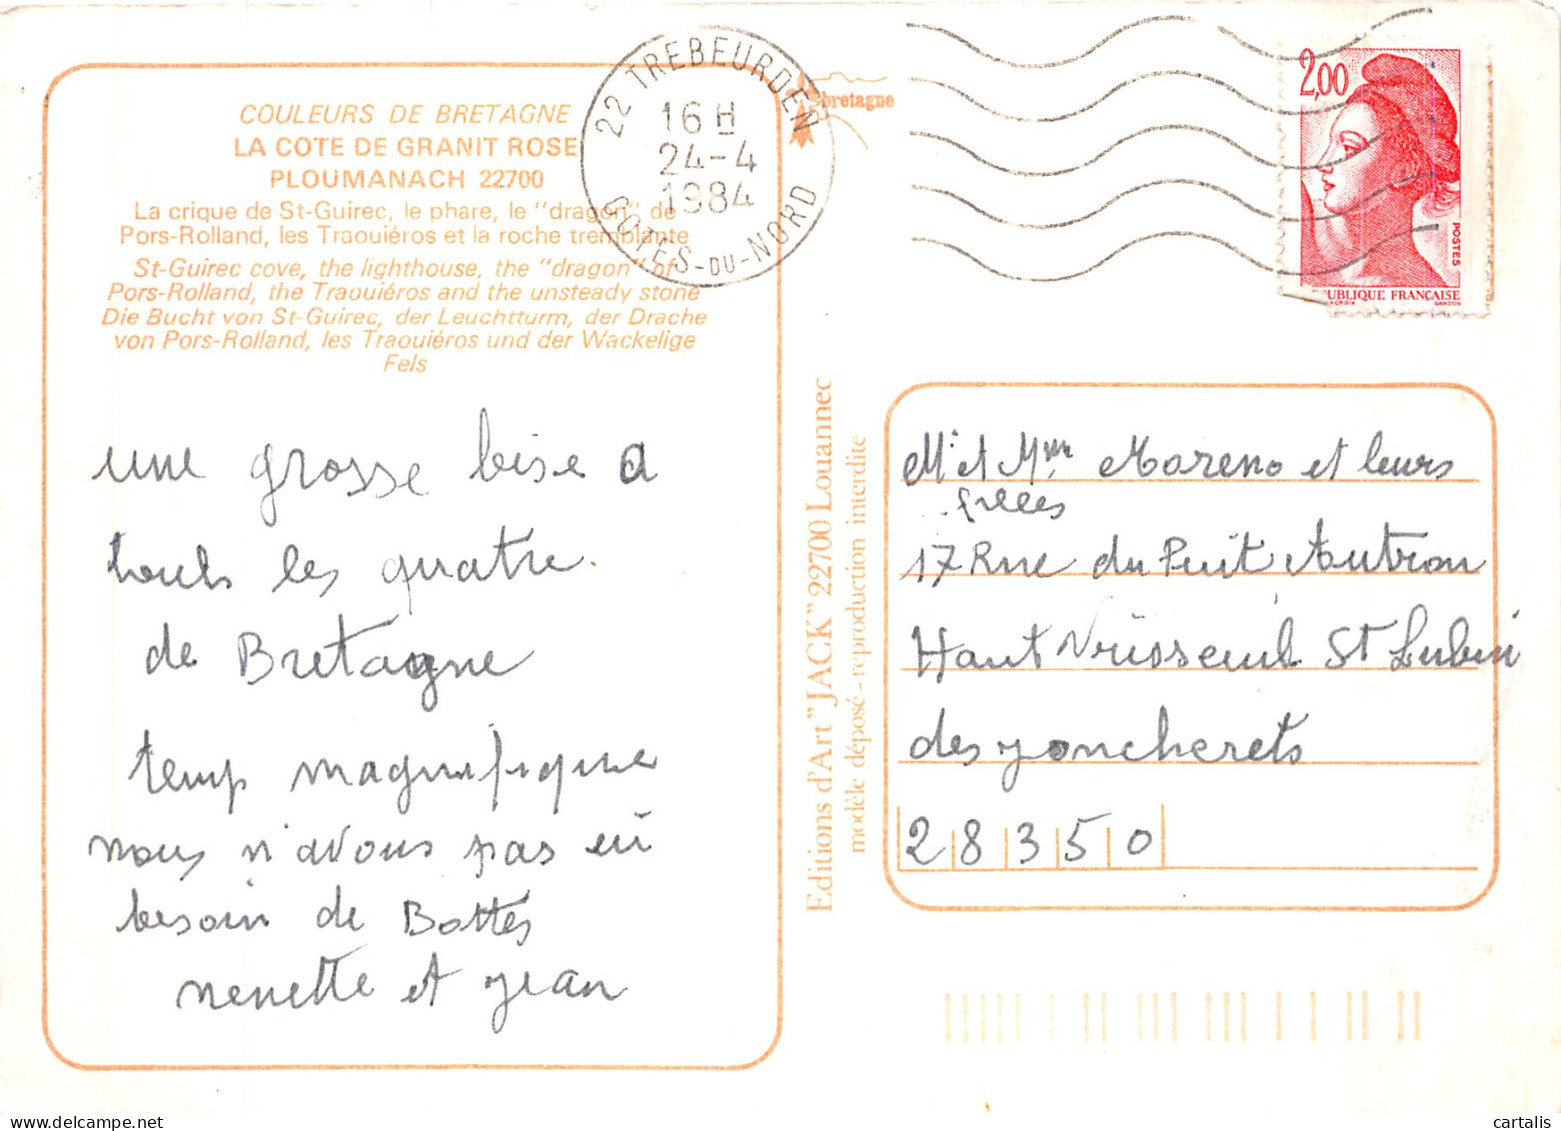 COULEURS DE BRETAGNE
LA COTE DE GRANIT ROSE
PLOUMANACH 22700
La crique de St-Guirec, le phare, le "dragon" de
Pors-Rolland, les Traouiéros et la roche tremblante
St-Guirec cove, the lighthouse, the "dragon" of
Pors-Rolland, the Traouiéros and the unsteady stone
Die Bucht von St-Guirec, der Leuchtturm, der Drache
von Pors-Rolland, les Traouiéros und der Wackelige
Fels
une grosse bise a
tous les quatre.
de Bretagne
temp magnifique
nous n'avons pas eü
besoin de Bottes
nenette et jean
22 TREBEURDEN
16 H
24-4
1984
COTES-DU-NORD
bretagne
2,00
POSTES
RÉPUBLIQUE FRANÇAISE
GANDON
Editions d'Art "JACK" 22700 Louannec
modèle déposé - reproduction interdite
Mr et Mme Moreno et leurs
filles
17 Rue du Puit Autron
Haut St Lubin
des joncherets
28350
cartalis